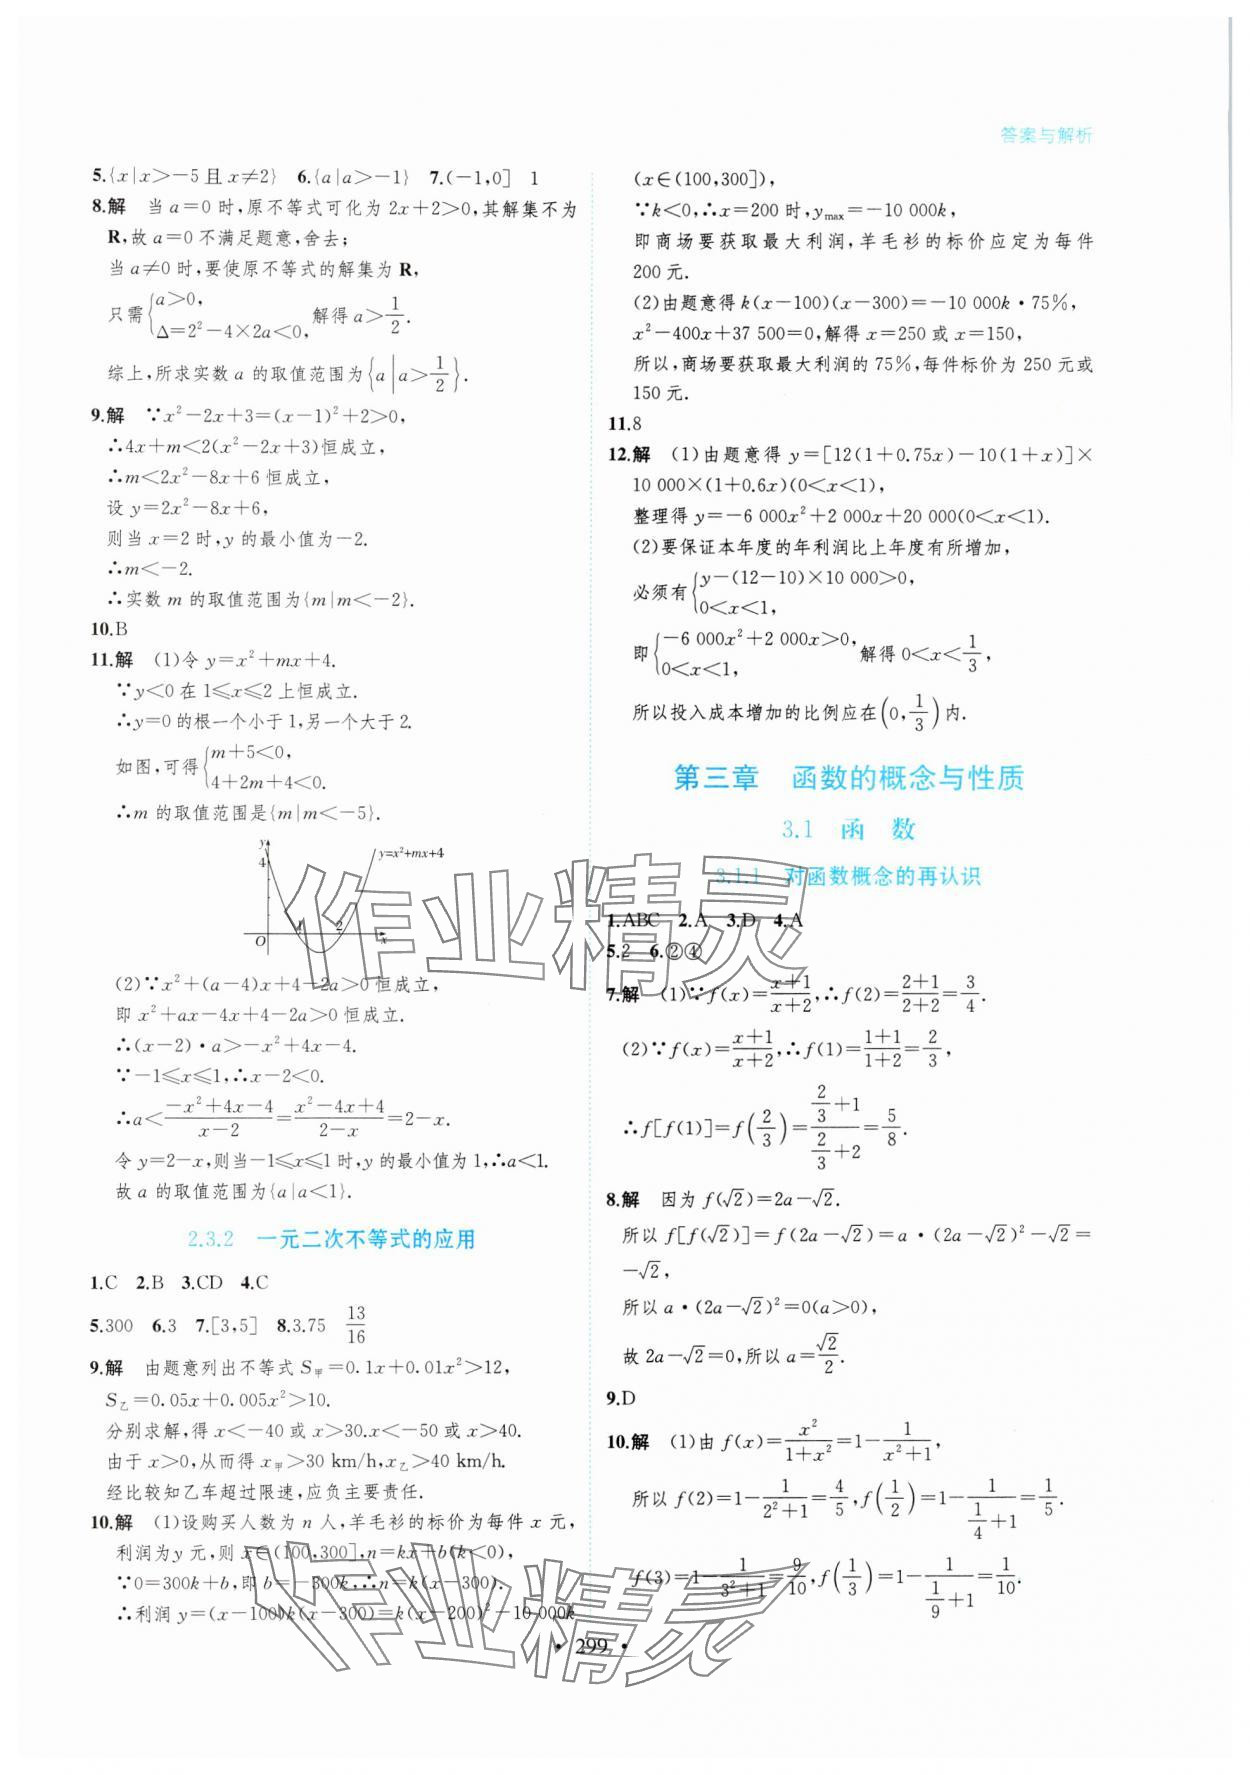 答案与解析
5.{x|x>-5且x≠2}  6.{a|a>-1}  7.(-1,0]  1
8.解  当a=0时,原不等式可化为2x+2>0,其解集不为
R,故a=0不满足题意,舍去;
当a≠0时,要使原不等式的解集为R,
只需{a>0, Δ=2²-4×2a<0, 解得a>1/2.
综上,所求实数a的取值范围为{a|a>1/2}.
9.解  ∵x²-2x+3=(x-1)²+2>0,
∴4x+m<2(x²-2x+3)恒成立,
∴m<2x²-8x+6恒成立,
设y=2x²-8x+6,
则当x=2时,y的最小值为-2.
∴m<-2.
∴实数m的取值范围为{m|m<-2}.
10.B
11.解  (1)令y=x²+mx+4.
∵y<0在1≤x≤2上恒成立.
∴y=0的根一个小于1,另一个大于2.
如图,可得{m+5<0, 4+2m+4<0,
∴m的取值范围是{m|m<-5}.
y
4
y=x²+mx+4
O 1 2 x
(2)∵x²+(a-4)x+4-2a>0恒成立,
即x²+ax-4x+4-2a>0恒成立.
∴(x-2)·a>-x²+4x-4.
∵-1≤x≤1,∴x-2<0.
∴a<(-x²+4x-4)/(x-2)=(x²-4x+4)/(2-x)=2-x.
令y=2-x,则当-1≤x≤1时,y的最小值为1,∴a<1.
故a的取值范围为{a|a<1}.
2.3.2  一元二次不等式的应用
1.C  2.B  3.CD  4.C
5.300  6.3  7.[3,5]  8.3.75  13/16
9.解  由题意列出不等式S甲=0.1x+0.01x²>12,
S乙=0.05x+0.005x²>10.
分别求解,得x<-40或x>30.x<-50或x>40.
由于x>0,从而得x甲>30 km/h,x乙>40 km/h.
经比较知乙车超过限速,应负主要责任.
10.解  (1)设购买人数为n人,羊毛衫的标价为每件x元,
利润为y元,则x∈(100,300],n=kx+b(k<0),
∵0=300k+b,即b=-300k,∴n=k(x-300).
∴利润y=(x-100)k(x-300)=k(x-200)²-10 000k
(x∈(100,300]),
∵k<0,∴x=200时,ymax=-10 000k,
即商场要获取最大利润,羊毛衫的标价应定为每件
200元.
(2)由题意得k(x-100)(x-300)=-10 000k·75%,
x²-400x+37 500=0,解得x=250或x=150,
所以,商场要获取最大利润的75%,每件标价为250元或
150元.
11.8
12.解  (1)由题意得y=[12(1+0.75x)-10(1+x)]×
10 000×(1+0.6x)(0<x<1),
整理得y=-6 000x²+2 000x+20 000(0<x<1).
(2)要保证本年度的年利润比上年度有所增加,
必须有{y-(12-10)×10 000>0, 0<x<1,
即{-6 000x²+2 000x>0, 0<x<1, 解得0<x<1/3,
所以投入成本增加的比例应在(0,1/3)内.
第三章  函数的概念与性质
3.1  函  数
3.1.1  对函数概念的再认识
1.ABC  2.A  3.D  4.A
5.2  6.②④
7.解  (1)∵f(x)=(x+1)/(x+2),∴f(2)=(2+1)/(2+2)=3/4.
(2)∵f(x)=(x+1)/(x+2),∴f(1)=(1+1)/(1+2)=2/3,
∴f[f(1)]=f(2/3)=(2/3+1)/(2/3+2)=5/8.
8.解  因为f(√2)=2a-√2.
所以f[f(√2)]=f(2a-√2)=a·(2a-√2)²-√2=
-√2,
所以a·(2a-√2)²=0(a>0),
故2a-√2=0,所以a=√2/2.
9.D
10.解  (1)由f(x)=x²/(1+x²)=1-1/(x²+1),
所以f(2)=1-1/(2²+1)=4/5,f(1/2)=1-1/(1/4+1)=1/5.
f(3)=1-1/(3²+1)=9/10,f(1/3)=1-1/(1/9+1)=1/10.
· 299 ·
作业精灵
作业精灵